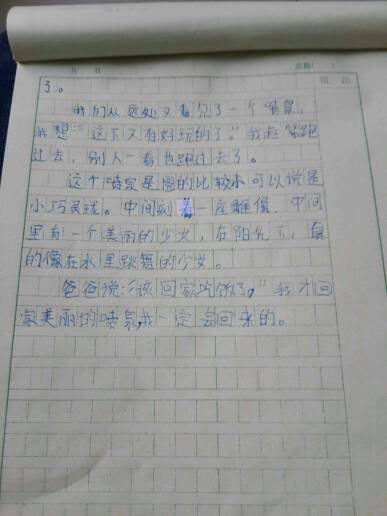 月 日
了。
我们从远处又看见了一个喷泉,
我想:"这下又有好玩的了。"我赶紧跑
过去,别人一看也跑过去了。
这个喷泉是圆的比较小可以说是
小巧灵珑。中间刻着一座雕像,中间
里有一个美丽的少女,在阳光下,真
的像在水里跳舞的少女。
爸爸说:"该回家吃饭了。"我才回
家美丽的喷泉,我一定会回来的。